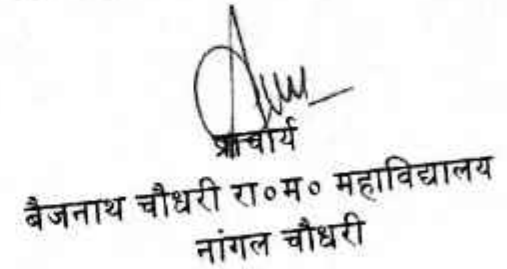 प्राचार्य
बैजनाथ चौधरी रा०म० महाविद्यालय
नांगल चौधरी